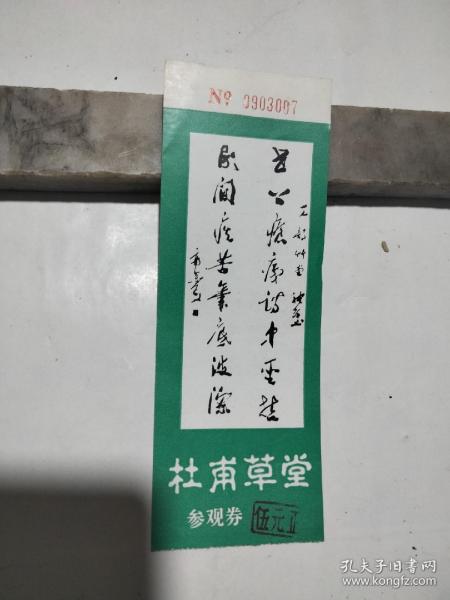 № 0903007
世上瘡痍詩中聖哲
民間疾苦筆底波瀾
杜甫草堂
参观券
伍元正
孔夫子旧书网
www.kongfz.com